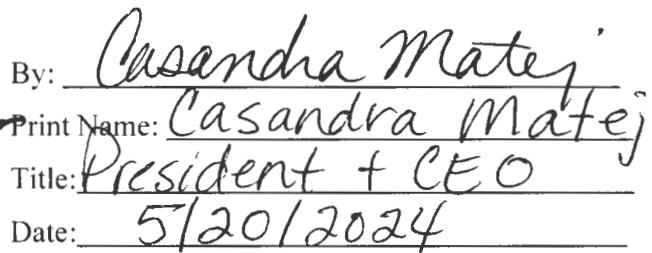 By: Casandra Matej
Print Name: Casandra Matej
Title: President + CEO
Date: 5/20/2024